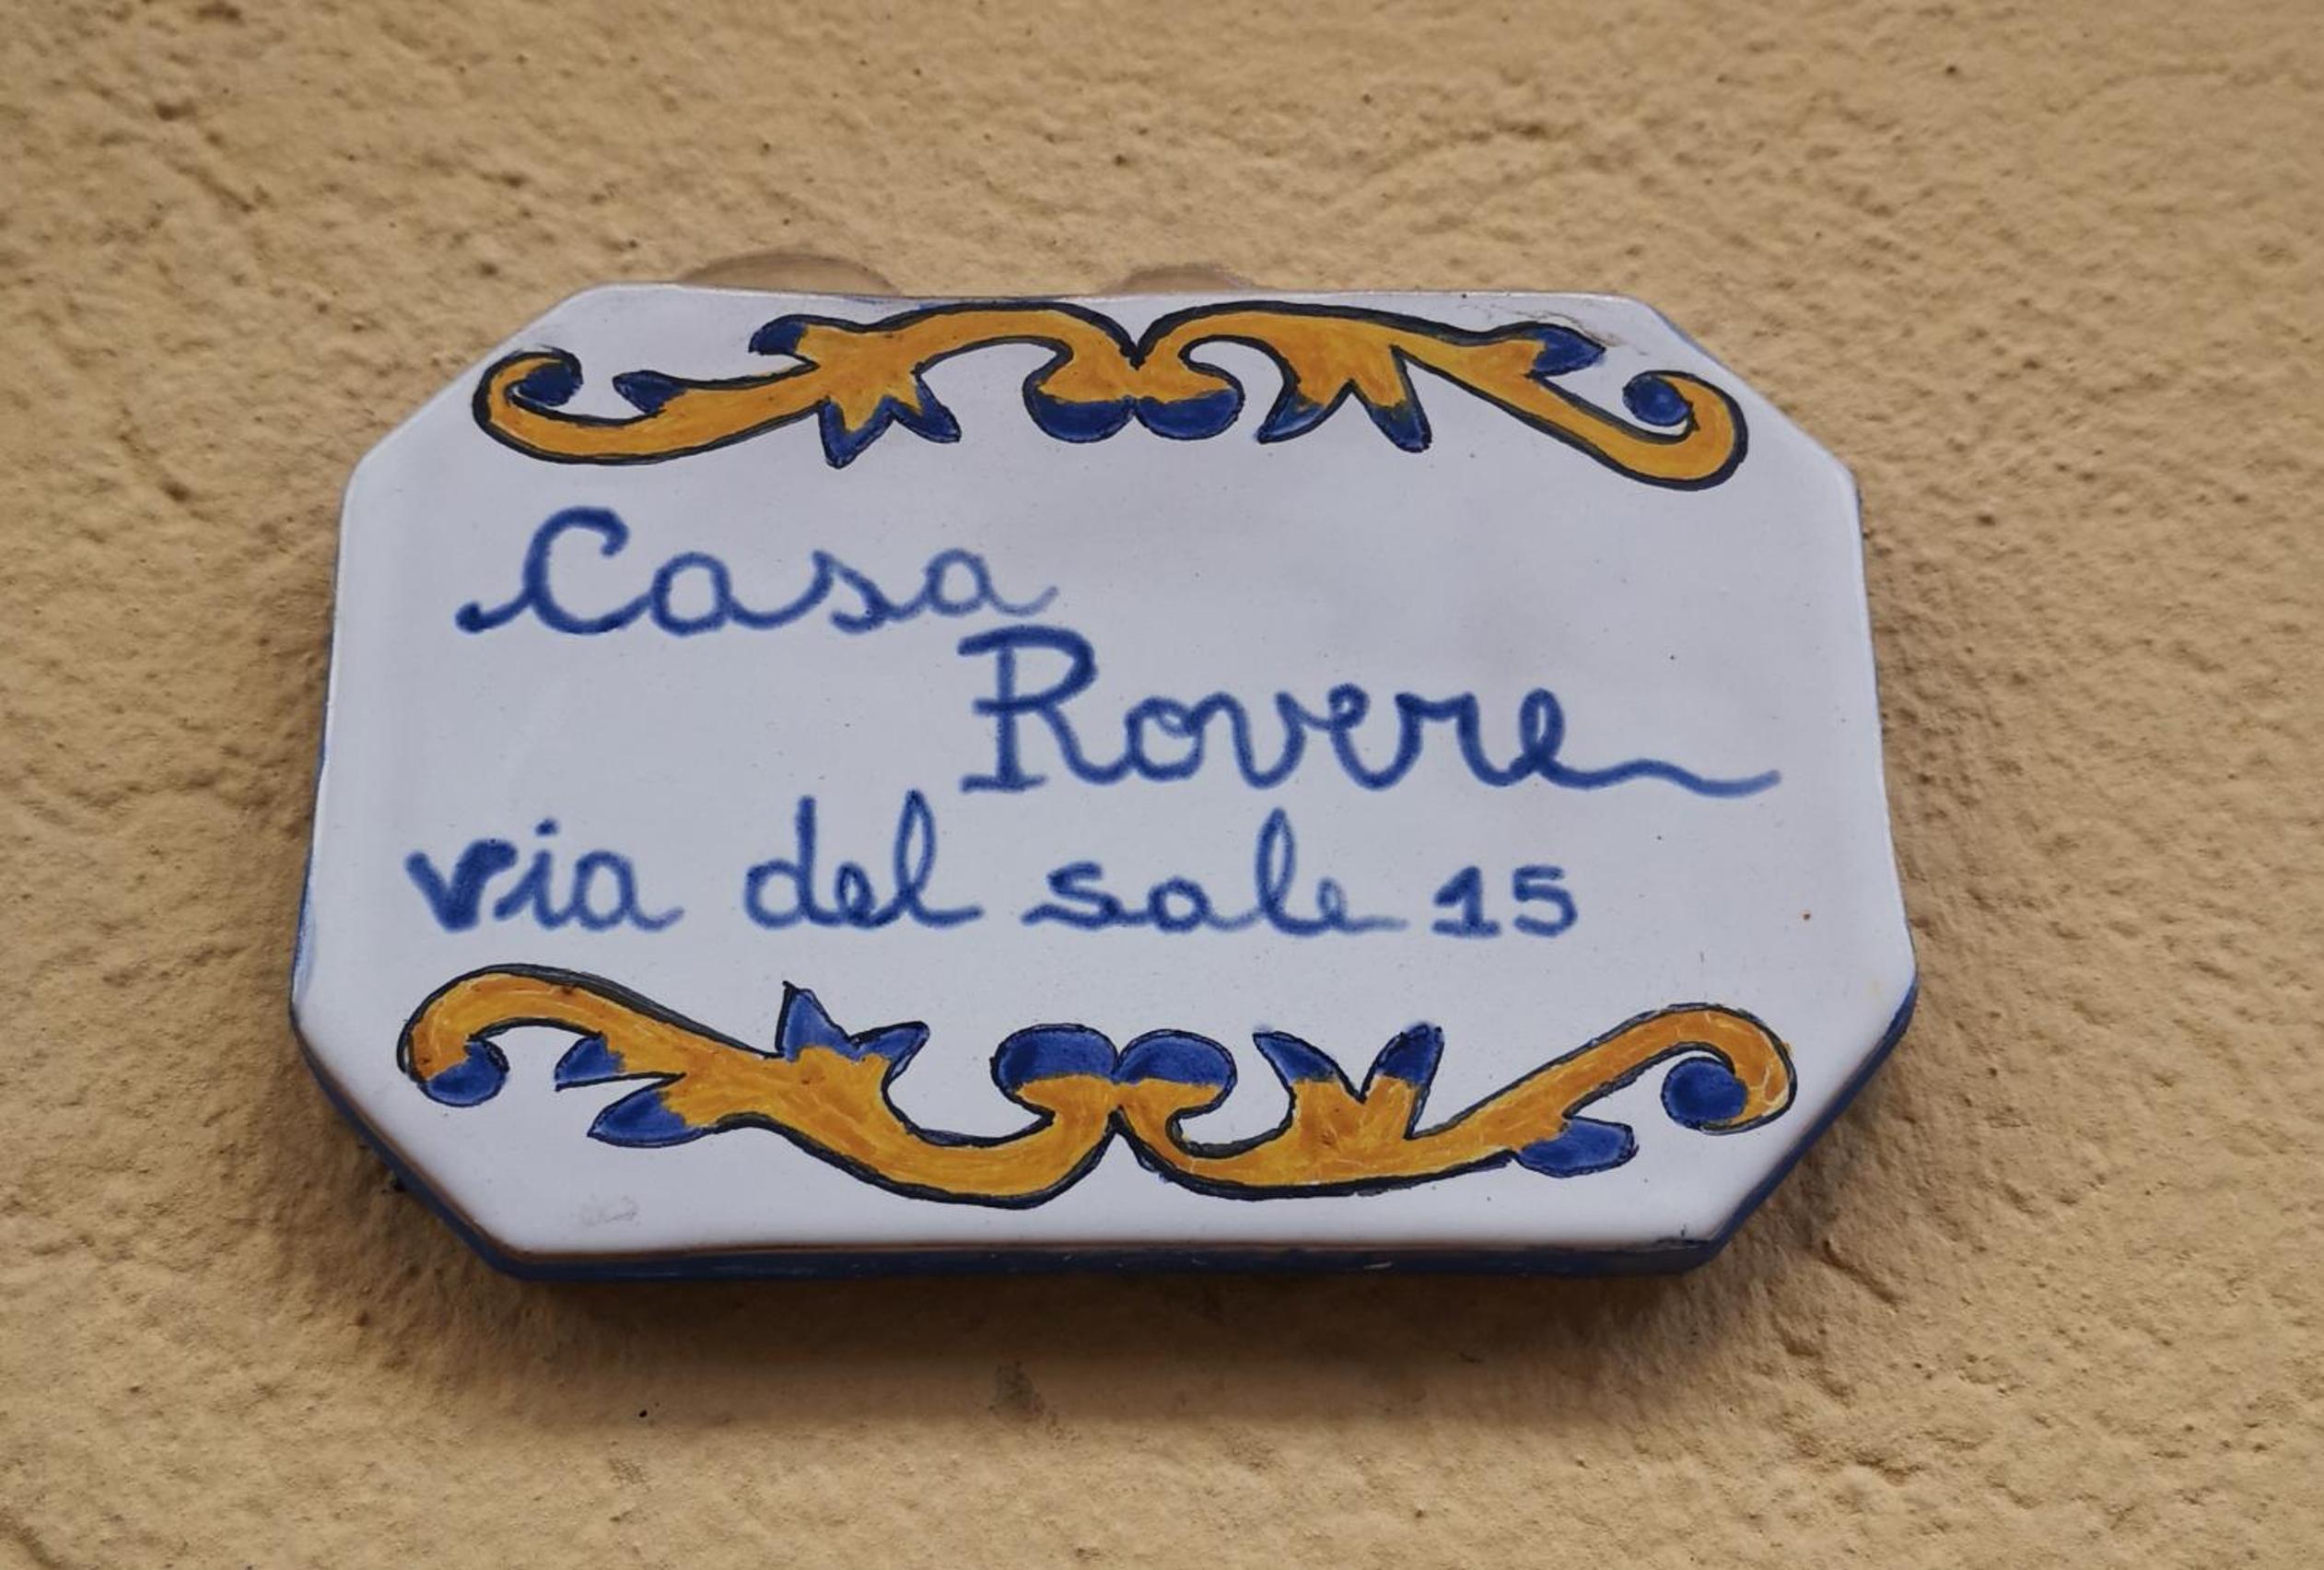 Casa
Rovere
via del sale 15